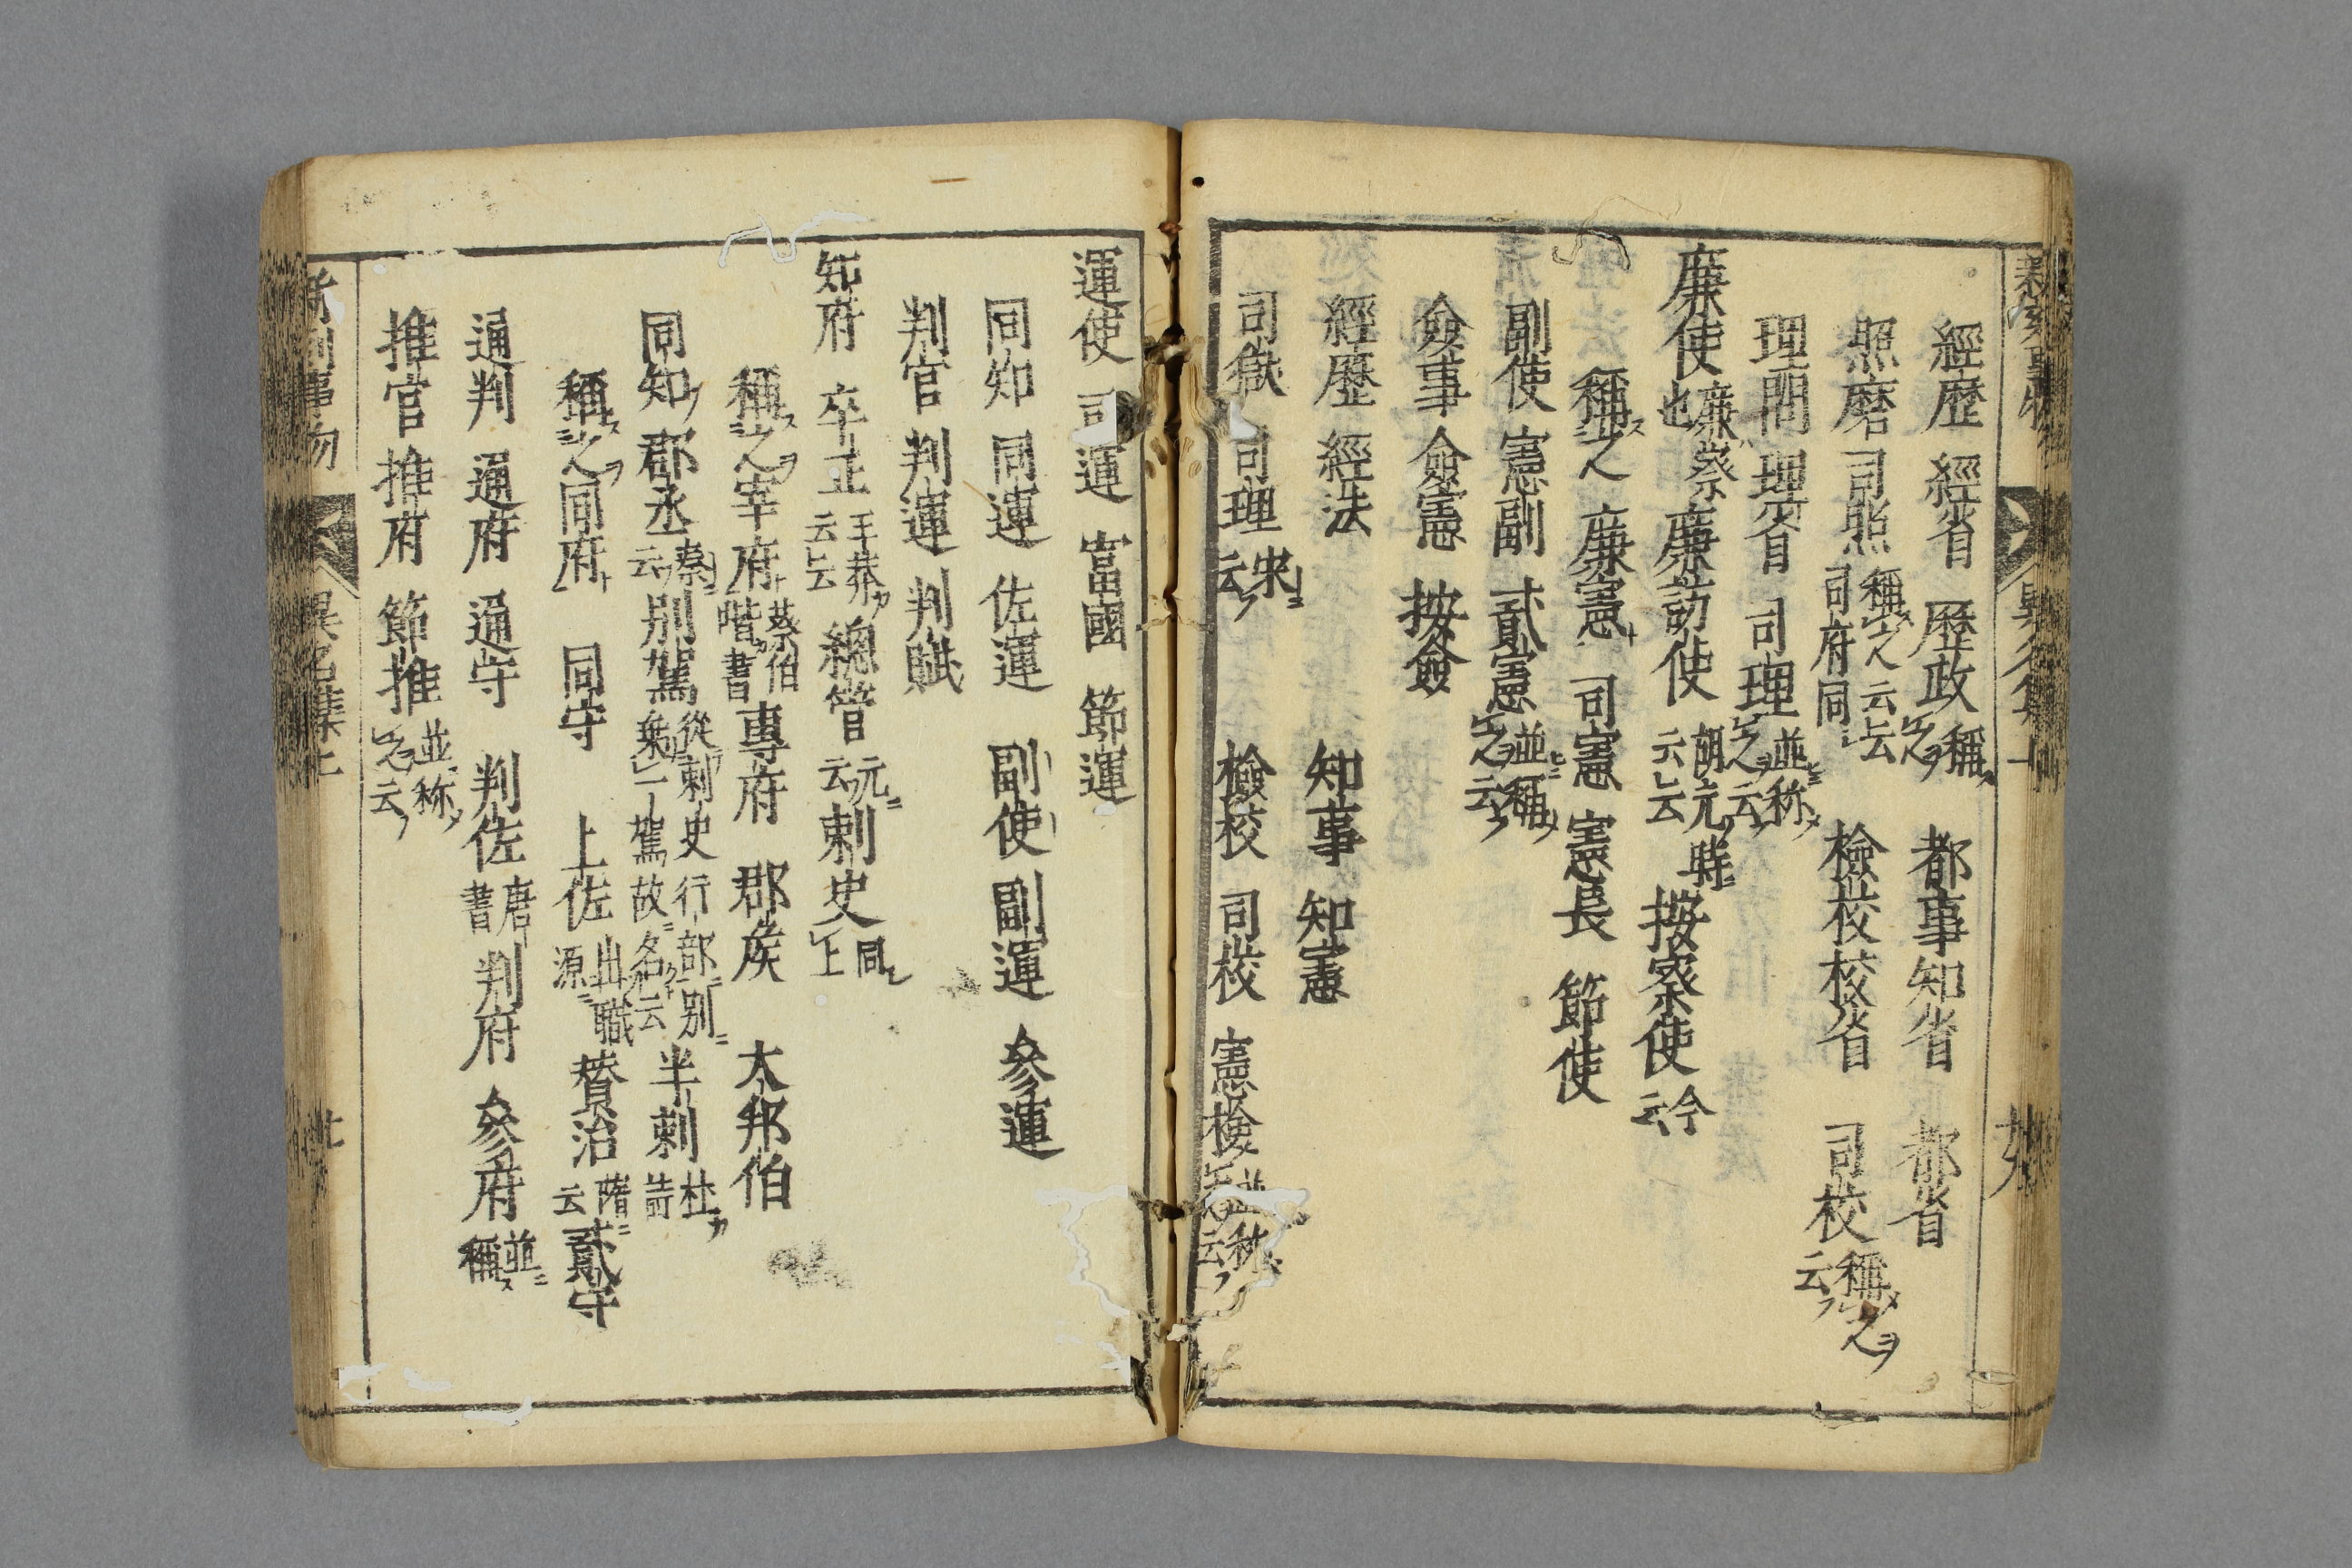 經歷 經省 歷政 稱之 都事 知省 都省
照磨 司照 稱之云云 司府同 檢校 校省 司校 稱之云
理問 理省 司理 並称之云
廉使 廉察也 廉訪使 胡元時云云 按察使 今云
稱之 廉憲 司憲 憲長 節使
副使 憲副 貳憲 並稱之云
僉事 僉憲 按僉
經歷 經法 知事 知憲
司獄 司理 宋云 檢校 司校 憲検 並称之云
運使 司運 富國 節運
同知 同運 佐運 副使 副運 參運
判官 判運 判賦
知府 卒正 王莽云云 總管 元云 刺史 同上
稱之 宰府 蔡伯喈書 專府 郡矦 大邦伯
同知 郡丞 秦云 別駕 從刺史行部別乗一駕故名云 半刺 杜詩
稱之 同府 同守 上佐 出職源 賛治 隋云 貳守
通判 通府 通守 判佐 唐書 判府 參府 並稱
推官 推府 節推 並称之云
事物 異名集上